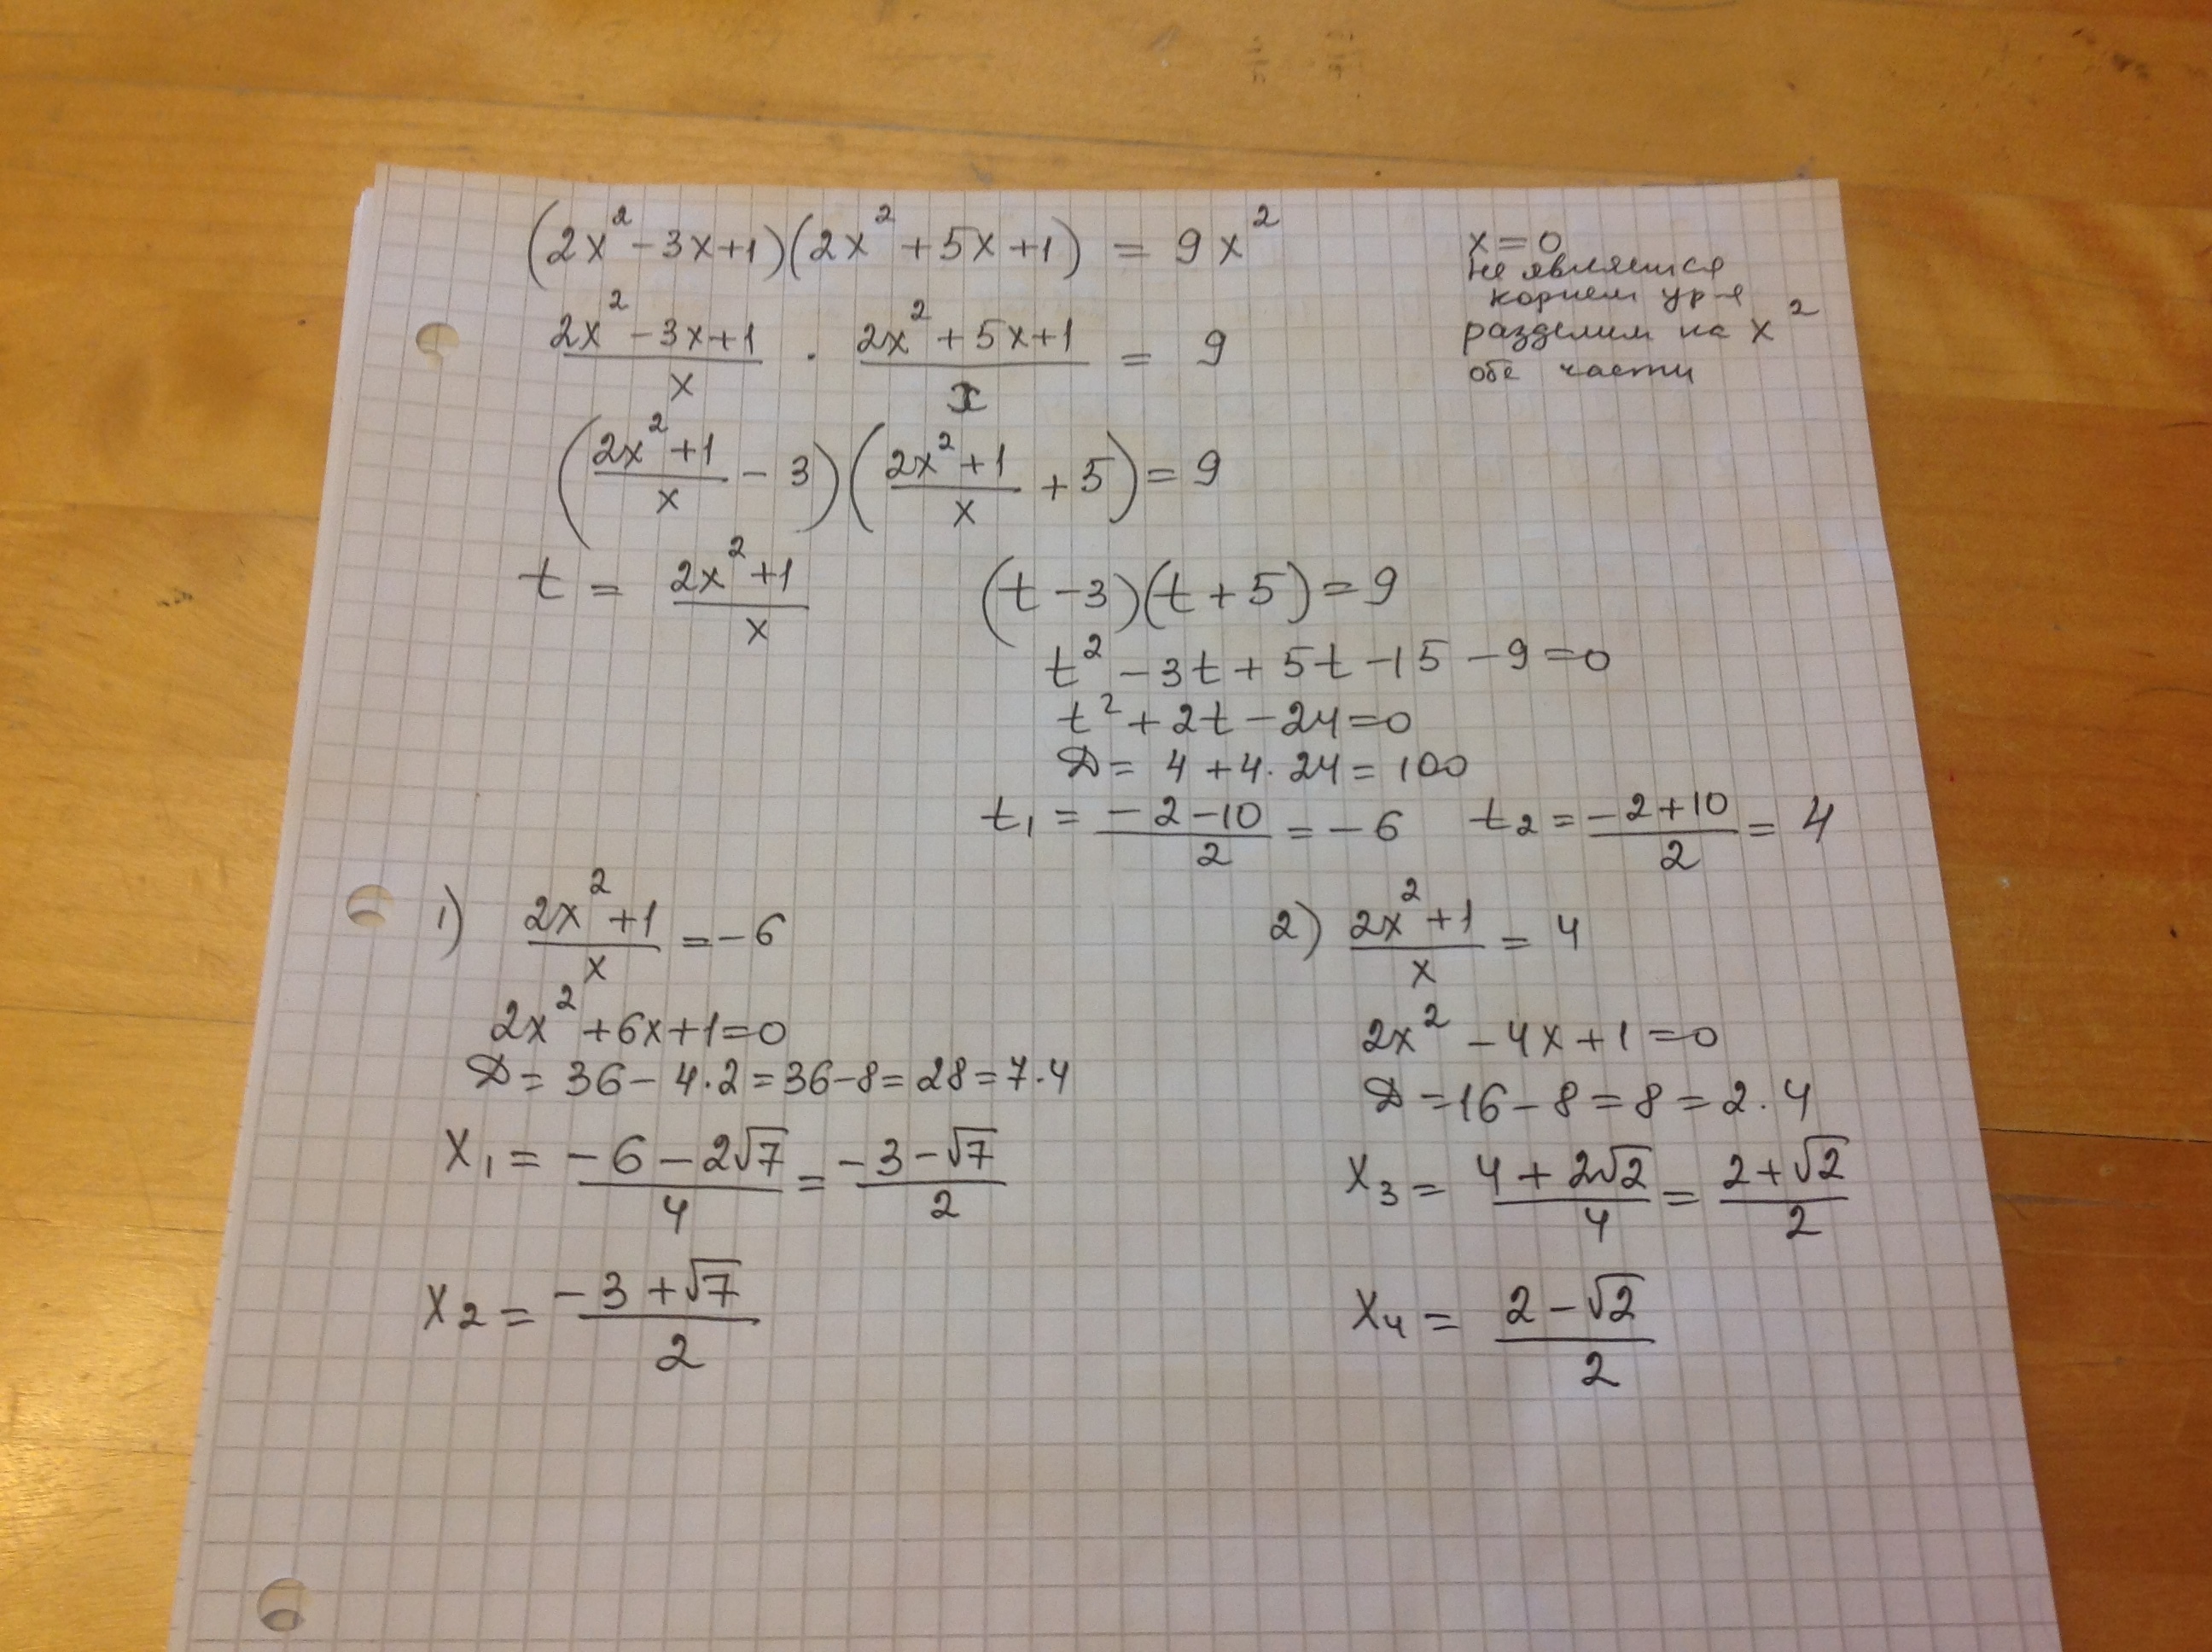 (2x² - 3x + 1)(2x² + 5x + 1) = 9x²
x = 0
не является
корнем ур-я
разделим на x²
обе части
(2x² - 3x + 1)/x · (2x² + 5x + 1)/x = 9
((2x² + 1)/x - 3)((2x² + 1)/x + 5) = 9
t = (2x² + 1)/x
(t - 3)(t + 5) = 9
t² - 3t + 5t - 15 - 9 = 0
t² + 2t - 24 = 0
D = 4 + 4·24 = 100
t₁ = (-2 - 10)/2 = -6 t₂ = (-2 + 10)/2 = 4
1) (2x² + 1)/x = -6
2x² + 6x + 1 = 0
D = 36 - 4·2 = 36 - 8 = 28 = 7·4
x₁ = (-6 - 2√7)/4 = (-3 - √7)/2
x₂ = (-3 + √7)/2
2) (2x² + 1)/x = 4
2x² - 4x + 1 = 0
D = 16 - 8 = 8 = 2·4
x₃ = (4 + 2√2)/4 = (2 + √2)/2
x₄ = (2 - √2)/2